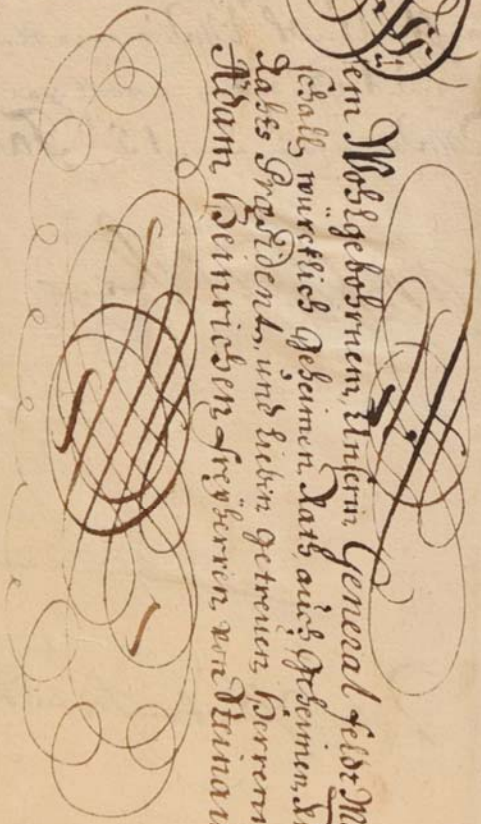 Dem Wohlgebohrnem, Unserm General feldt M
schall, würcklich geheimen Rath, auch geheimen
Raths Præsident, und Lieben getreuen, Herren
Adam Heinrichen Freyherren, von Steinau